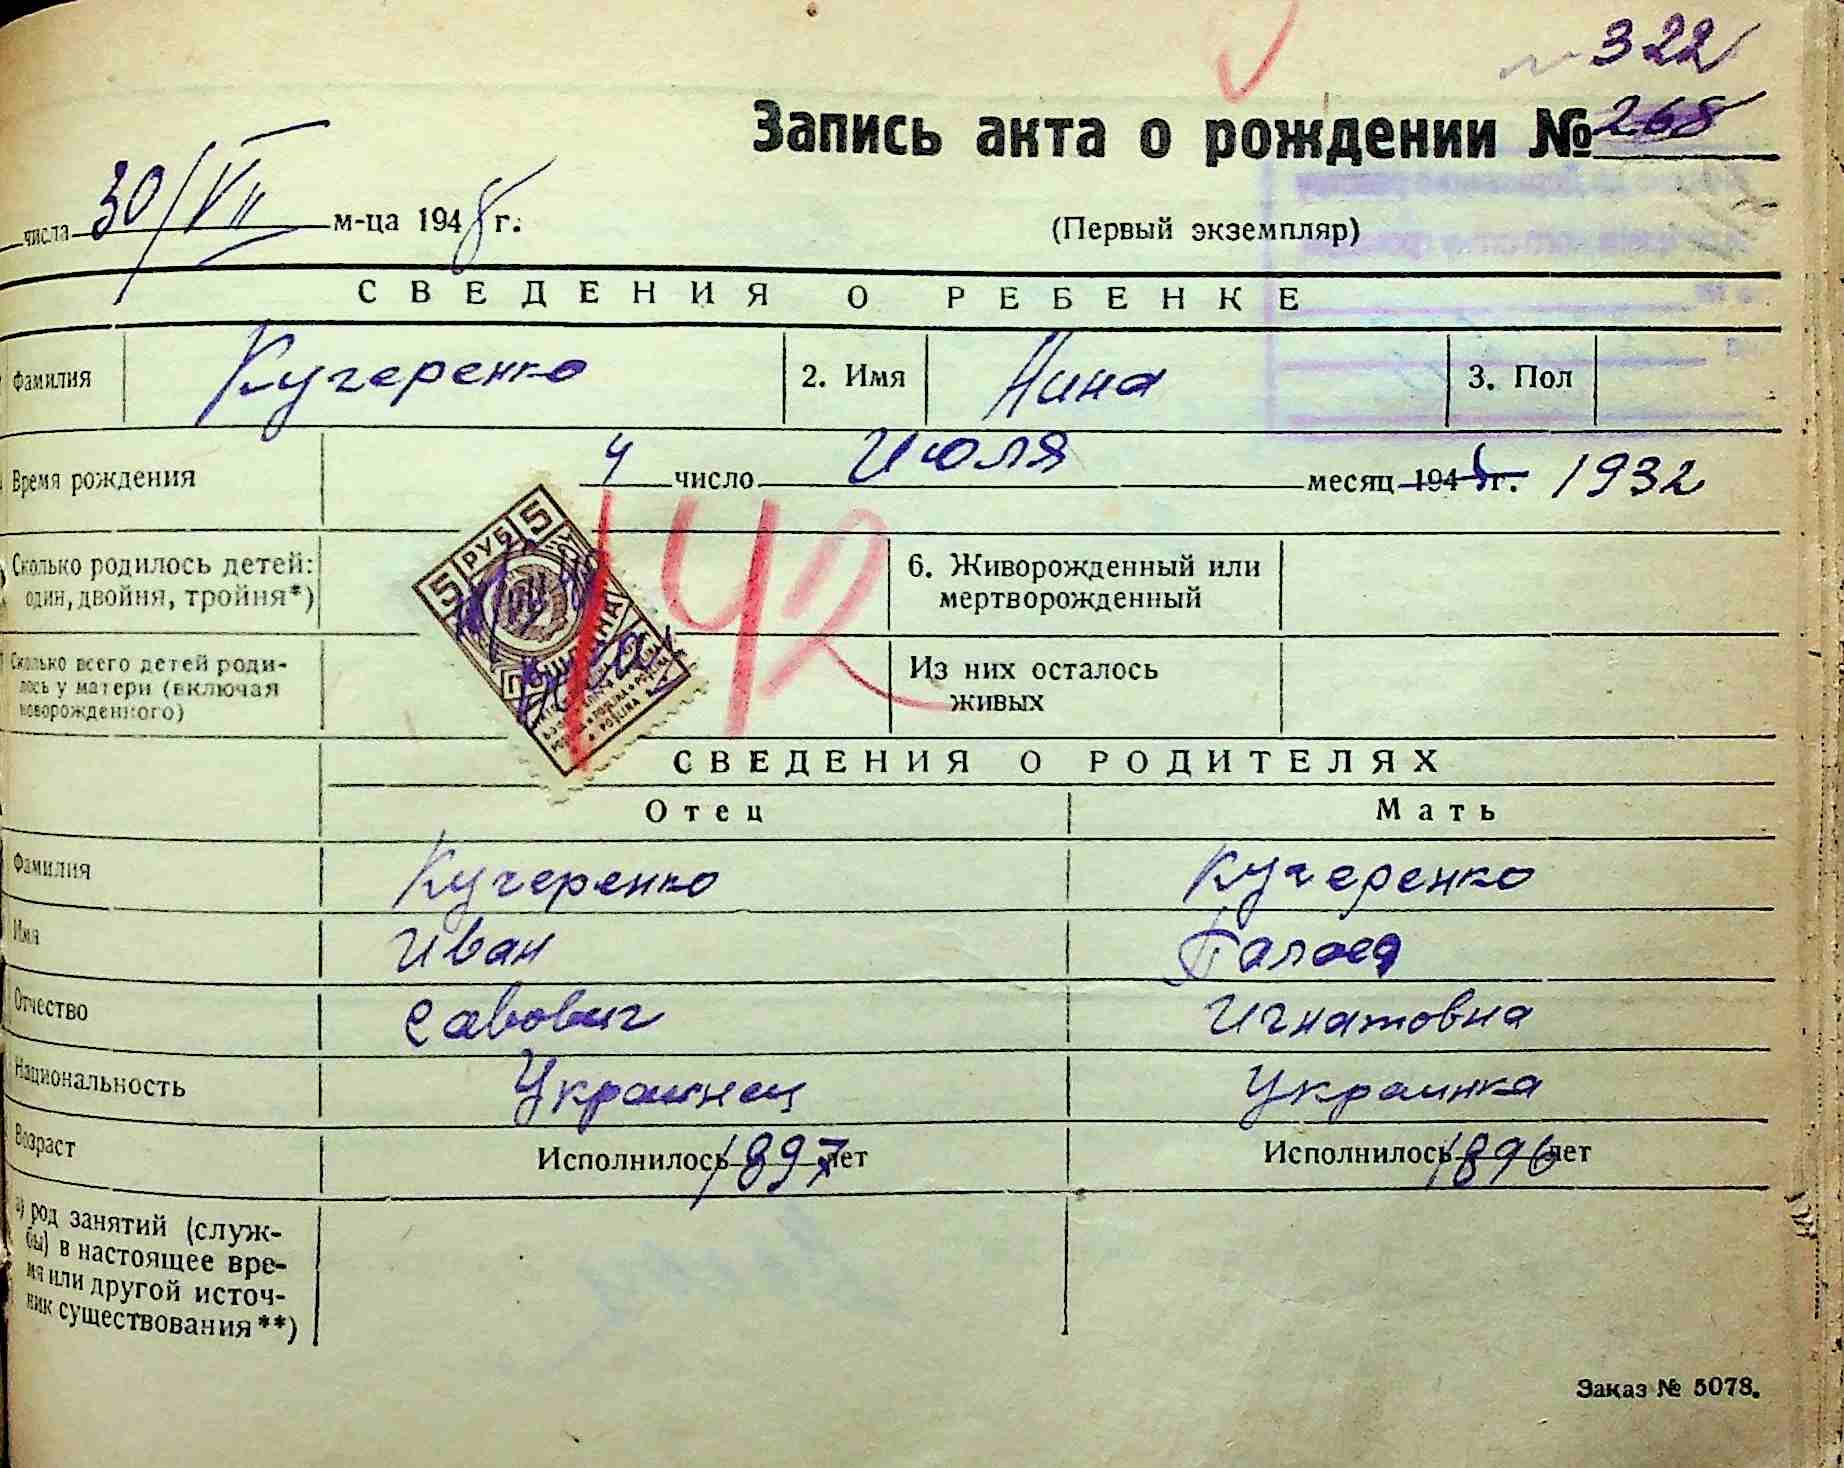 322
Запись акта о рождении № 268
числа 30/VII м-ца 1948 г.
(Первый экземпляр)
СВЕДЕНИЯ О РЕБЕНКЕ
Фамилия Кучеренко 2. Имя Нина 3. Пол
Время рождения 4 число Июля месяц 194 г. 1932
Сколько родилось детей: один, двойня, тройня*)
6. Живорожденный или мертворожденный
142
5 РУБ 5
Сколько всего детей родилось у матери (включая новорожденного)
Из них осталось живых
СВЕДЕНИЯ О РОДИТЕЛЯХ
Отец Мать
Фамилия Кучеренко Кучеренко
Имя Иван
Отчество Савович Игнатовна
Национальность Украинец Украинка
Возраст Исполнилось 1897 лет Исполнилось 1896 лет
а) род занятий (служ-
бы) в настоящее вре-
мя или другой источ-
ник существования**)
Заказ № 5078.